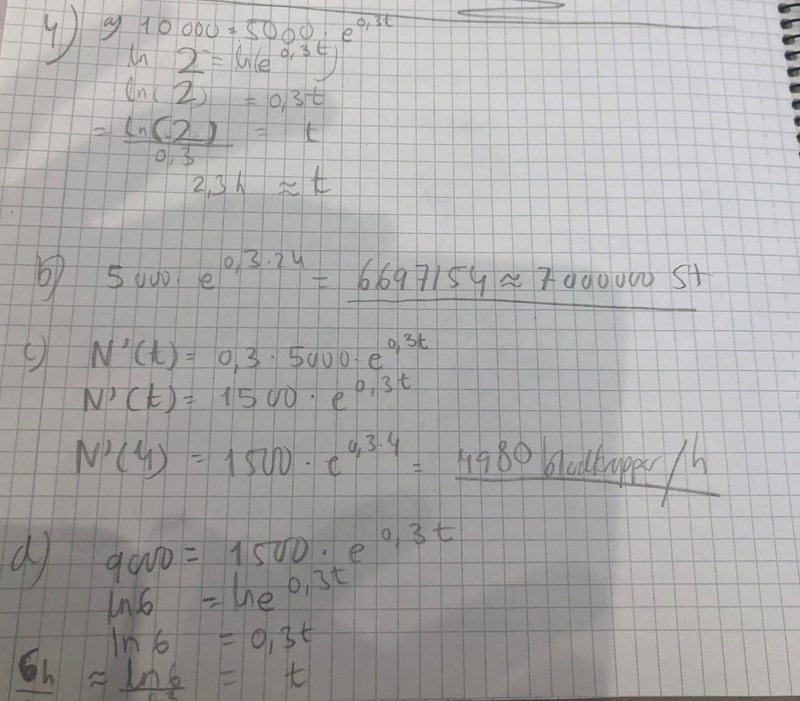 4) a) 10 000 = 5000 · e^0,3t
ln 2 = ln(e^0,3t)
ln(2) = 0,3t
= ln(2)/0,3 = t
2,3h ≈ t
b) 5000 · e^0,3·24 = 6697154 ≈ 7000000 St
c) N'(t) = 0,3 · 5000 · e^0,3t
N'(t) = 1500 · e^0,3t
N'(4) = 1500 · e^0,3·4 = 4980 blodkroppar/h
d) 9000 = 1500 · e^0,3t
ln6 = lne^0,3t
ln 6 = 0,3t
6h ≈ ln6/0,3 = t